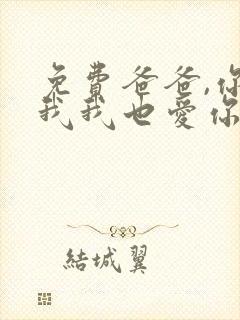 免費爸爸,你
我我也愛你
結城翼